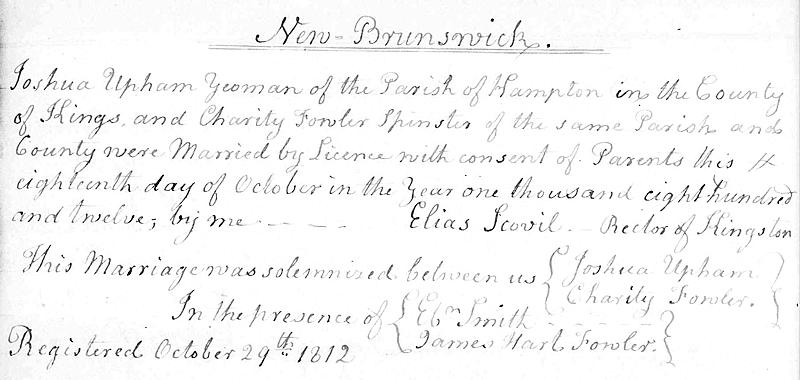 New-Brunswick.
Joshua Upham Yeoman of the Parish of Hampton in the County
of Kings, and Charity Fowler Spinster of the same Parish and
County were Married by Licence with consent of Parents this
eighteenth day of October in the Year one thousand eight hundred
and twelve; by me - - - - Elias Scovil - Rector of Kingston
This Marriage was solemnized between us { Joshua Upham }
Charity Fowler.
In the presence of { Ebn Smith - - - - }
James Hart Fowler.
Registered October 29th 1812